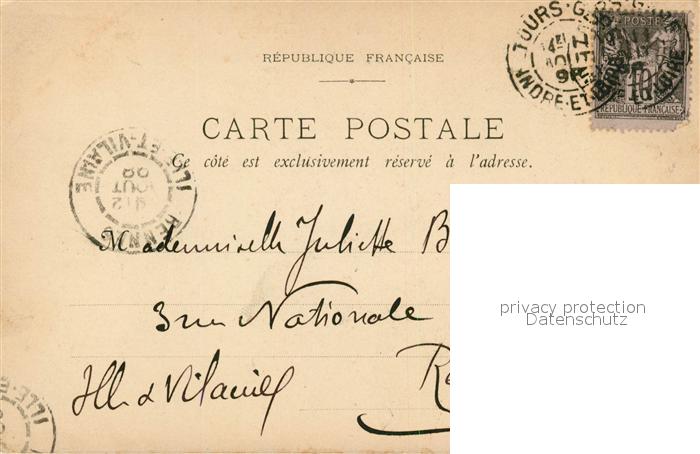 RÉPUBLIQUE FRANÇAISE
CARTE POSTALE
Ce côté est exclusivement réservé à l'adresse.
TOURS-GARE
INDRE-ET-LOIRE
POSTE
10
REPUBLIQUE FRANÇAISE
ILLE-ET-VILAINE
AOUT
RENNES
Mademoiselle Juliette B
3 rue Nationale
Ille & Vilaine Re
privacy protection
Datenschutz
ILLE-E